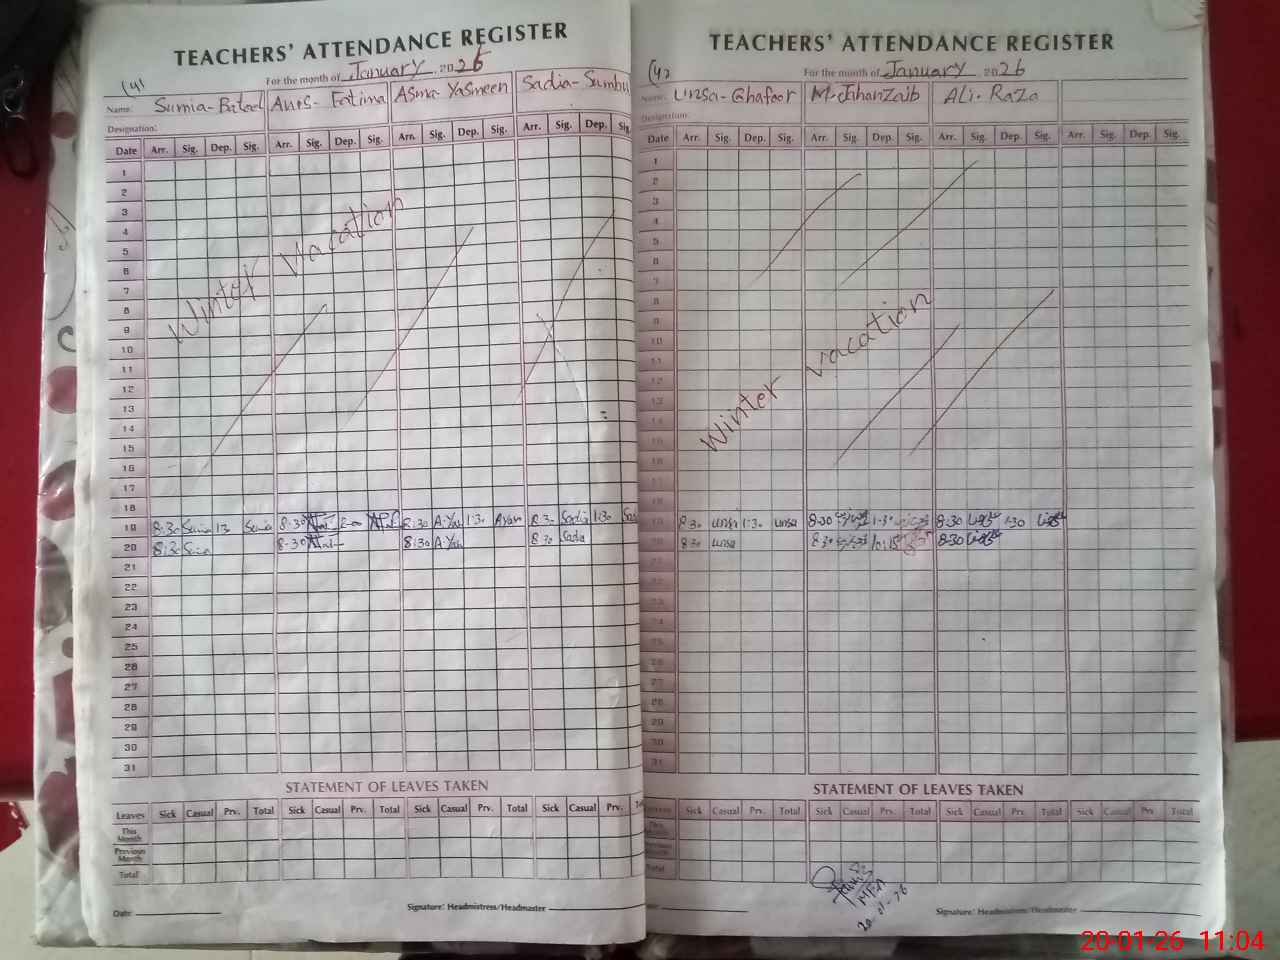 TEACHERS' ATTENDANCE REGISTER
(41
For the month of January, 2026
Name: Sumia-Batool Anos-Fatima Asma-Yasmeen Sadia-Sumbu
Designation:
Date Arr. Sig. Dep. Sig. Arr. Sig. Dep. Sig. Arr. Sig. Dep. Sig. Arr. Sig. Dep. Sig.
1
2
3
4
5
6
7
8
9
10
11
12
13
14
15
16
17
18
Winter vacation
19 8:30 Sumia 8-30 2-00 8:30 A.Yas 1:30 8:30 Sadia 1:30
20 8:30 Sumia 8-30 8:30 A.Yas 8:30 Sadia
21
22
23
24
25
26
27
28
29
30
31
STATEMENT OF LEAVES TAKEN
Leaves Sick Casual Prv. Total Sick Casual Prv. Total Sick Casual Prv. Total Sick Casual Prv.
This Month
Previous Month
Total
Date Signature: Headmistress/Headmaster
TEACHERS' ATTENDANCE REGISTER
(42
For the month of January 2026
Name: Unsa-Ghafoor M.JahanZaib ALi-RaZa
Designation:
Date Arr. Sig. Dep. Sig. Arr. Sig. Dep. Sig. Arr. Sig. Dep. Sig. Arr. Sig. Dep. Sig.
1
2
3
4
5
6
7
8
9
10
11
12
13
14
15
16
17
18
Winter vacation
19 8:30 unsa 1:30 unsa 8:30 1:30 8:30 1:30
20 8:30 unsa 8:30 10:15 8:30
21
22
23
24
25
26
27
28
29
30
31
STATEMENT OF LEAVES TAKEN
Leaves Sick Casual Prv. Total Sick Casual Prv. Total Sick Casual Prv. Total Sick Casual Prv Total
Total
MEA
20-01-26
Signature: Headmistress/Headmaster
20-01-26 11:04